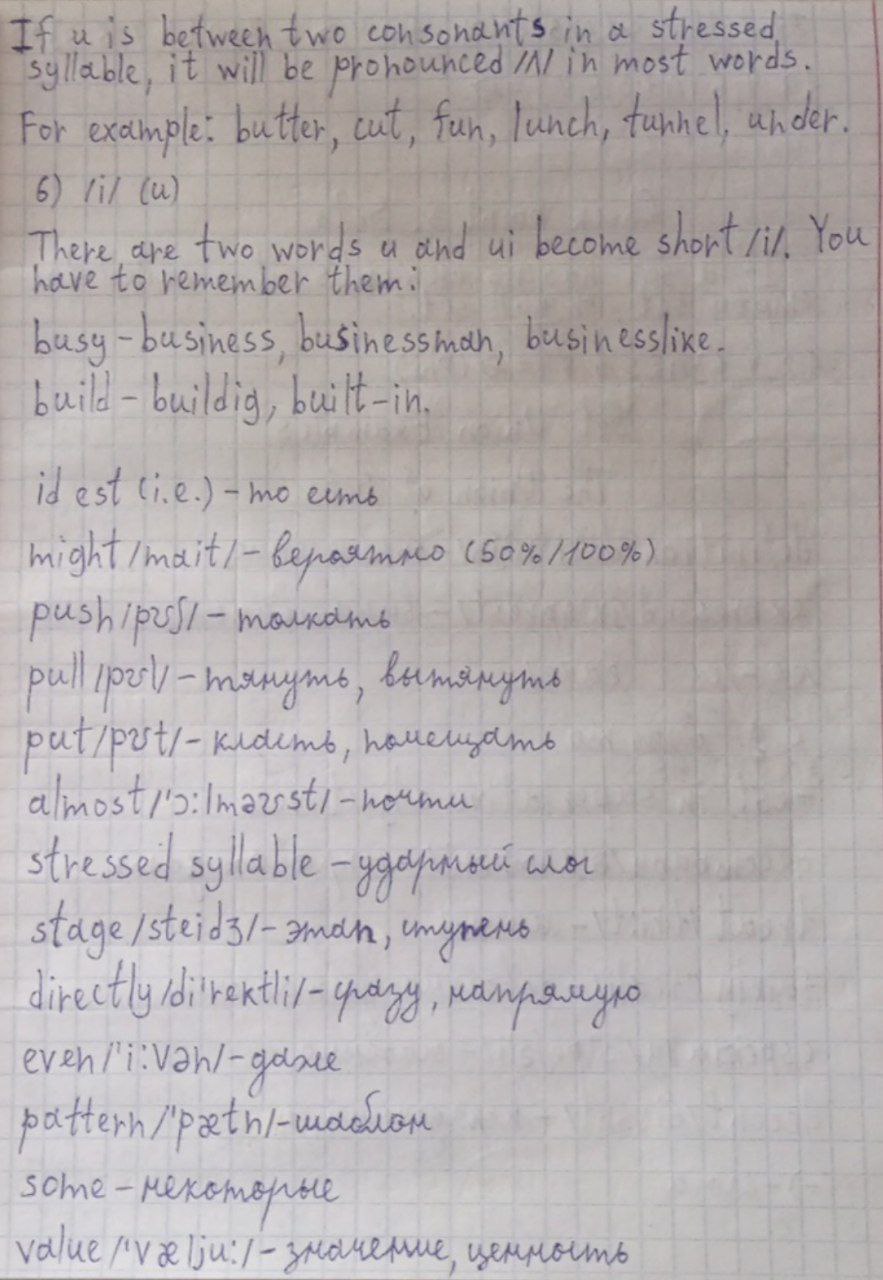 If u is between two consonants in a stressed
syllable, it will be pronounced /ʌ/ in most words.
For example: butter, cut, fun, lunch, tunnel, under.
6) /i/ (u)
There are two words u and ui become short /i/. You
have to remember them:
busy – business, businessman, businesslike.
build – buildig, built-in.
id est (i.e.) – то есть
might /mait/ – вероятно (50%/100%)
push /pʊʃ/ – толкать
pull /pʊl/ – тянуть, вытянуть
put /pʊt/ – класть, помещать
almost /'ɔ:lməʊst/ – почти
stressed syllable – ударный слог
stage /steidʒ/ – этап, ступень
directly /di'rektli/ – сразу, напрямую
even /'i:vən/ – даже
pattern /'pætn/ – шаблон
some – некоторые
value /'vælju:/ – значение, ценность